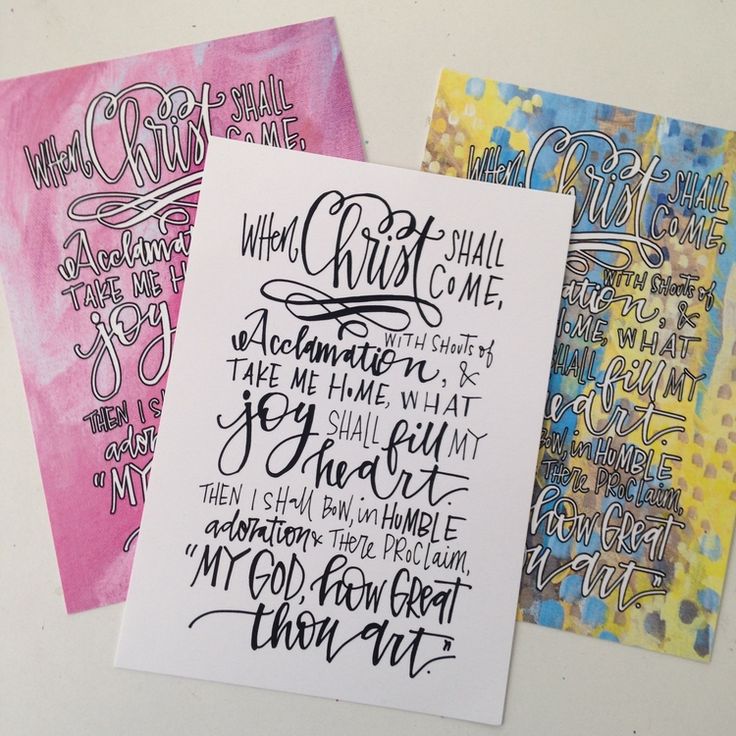 WHen Christ SHALL
COME,
Acclamation
TAKE ME HOME
joy
THEN I S
adoration
"MY
WHen Christ SHALL
COME,
WITH SHOUTS OF
Acclamation, &
TAKE ME HOME, WHAT
joy SHALL fill MY
heart.
THEN I SHALL BOW, in HUMBLE
adoration & THERE PROCLAIM,
"MY GOD, how GREAT
thou art."
WHen Christ SHALL
COME,
WITH SHOUTS OF
ation, &
HOME, WHAT
SHALL fill MY
heart.
BOW, in HUMBLE
THERE PROCLAIM,
how GREAT
art."